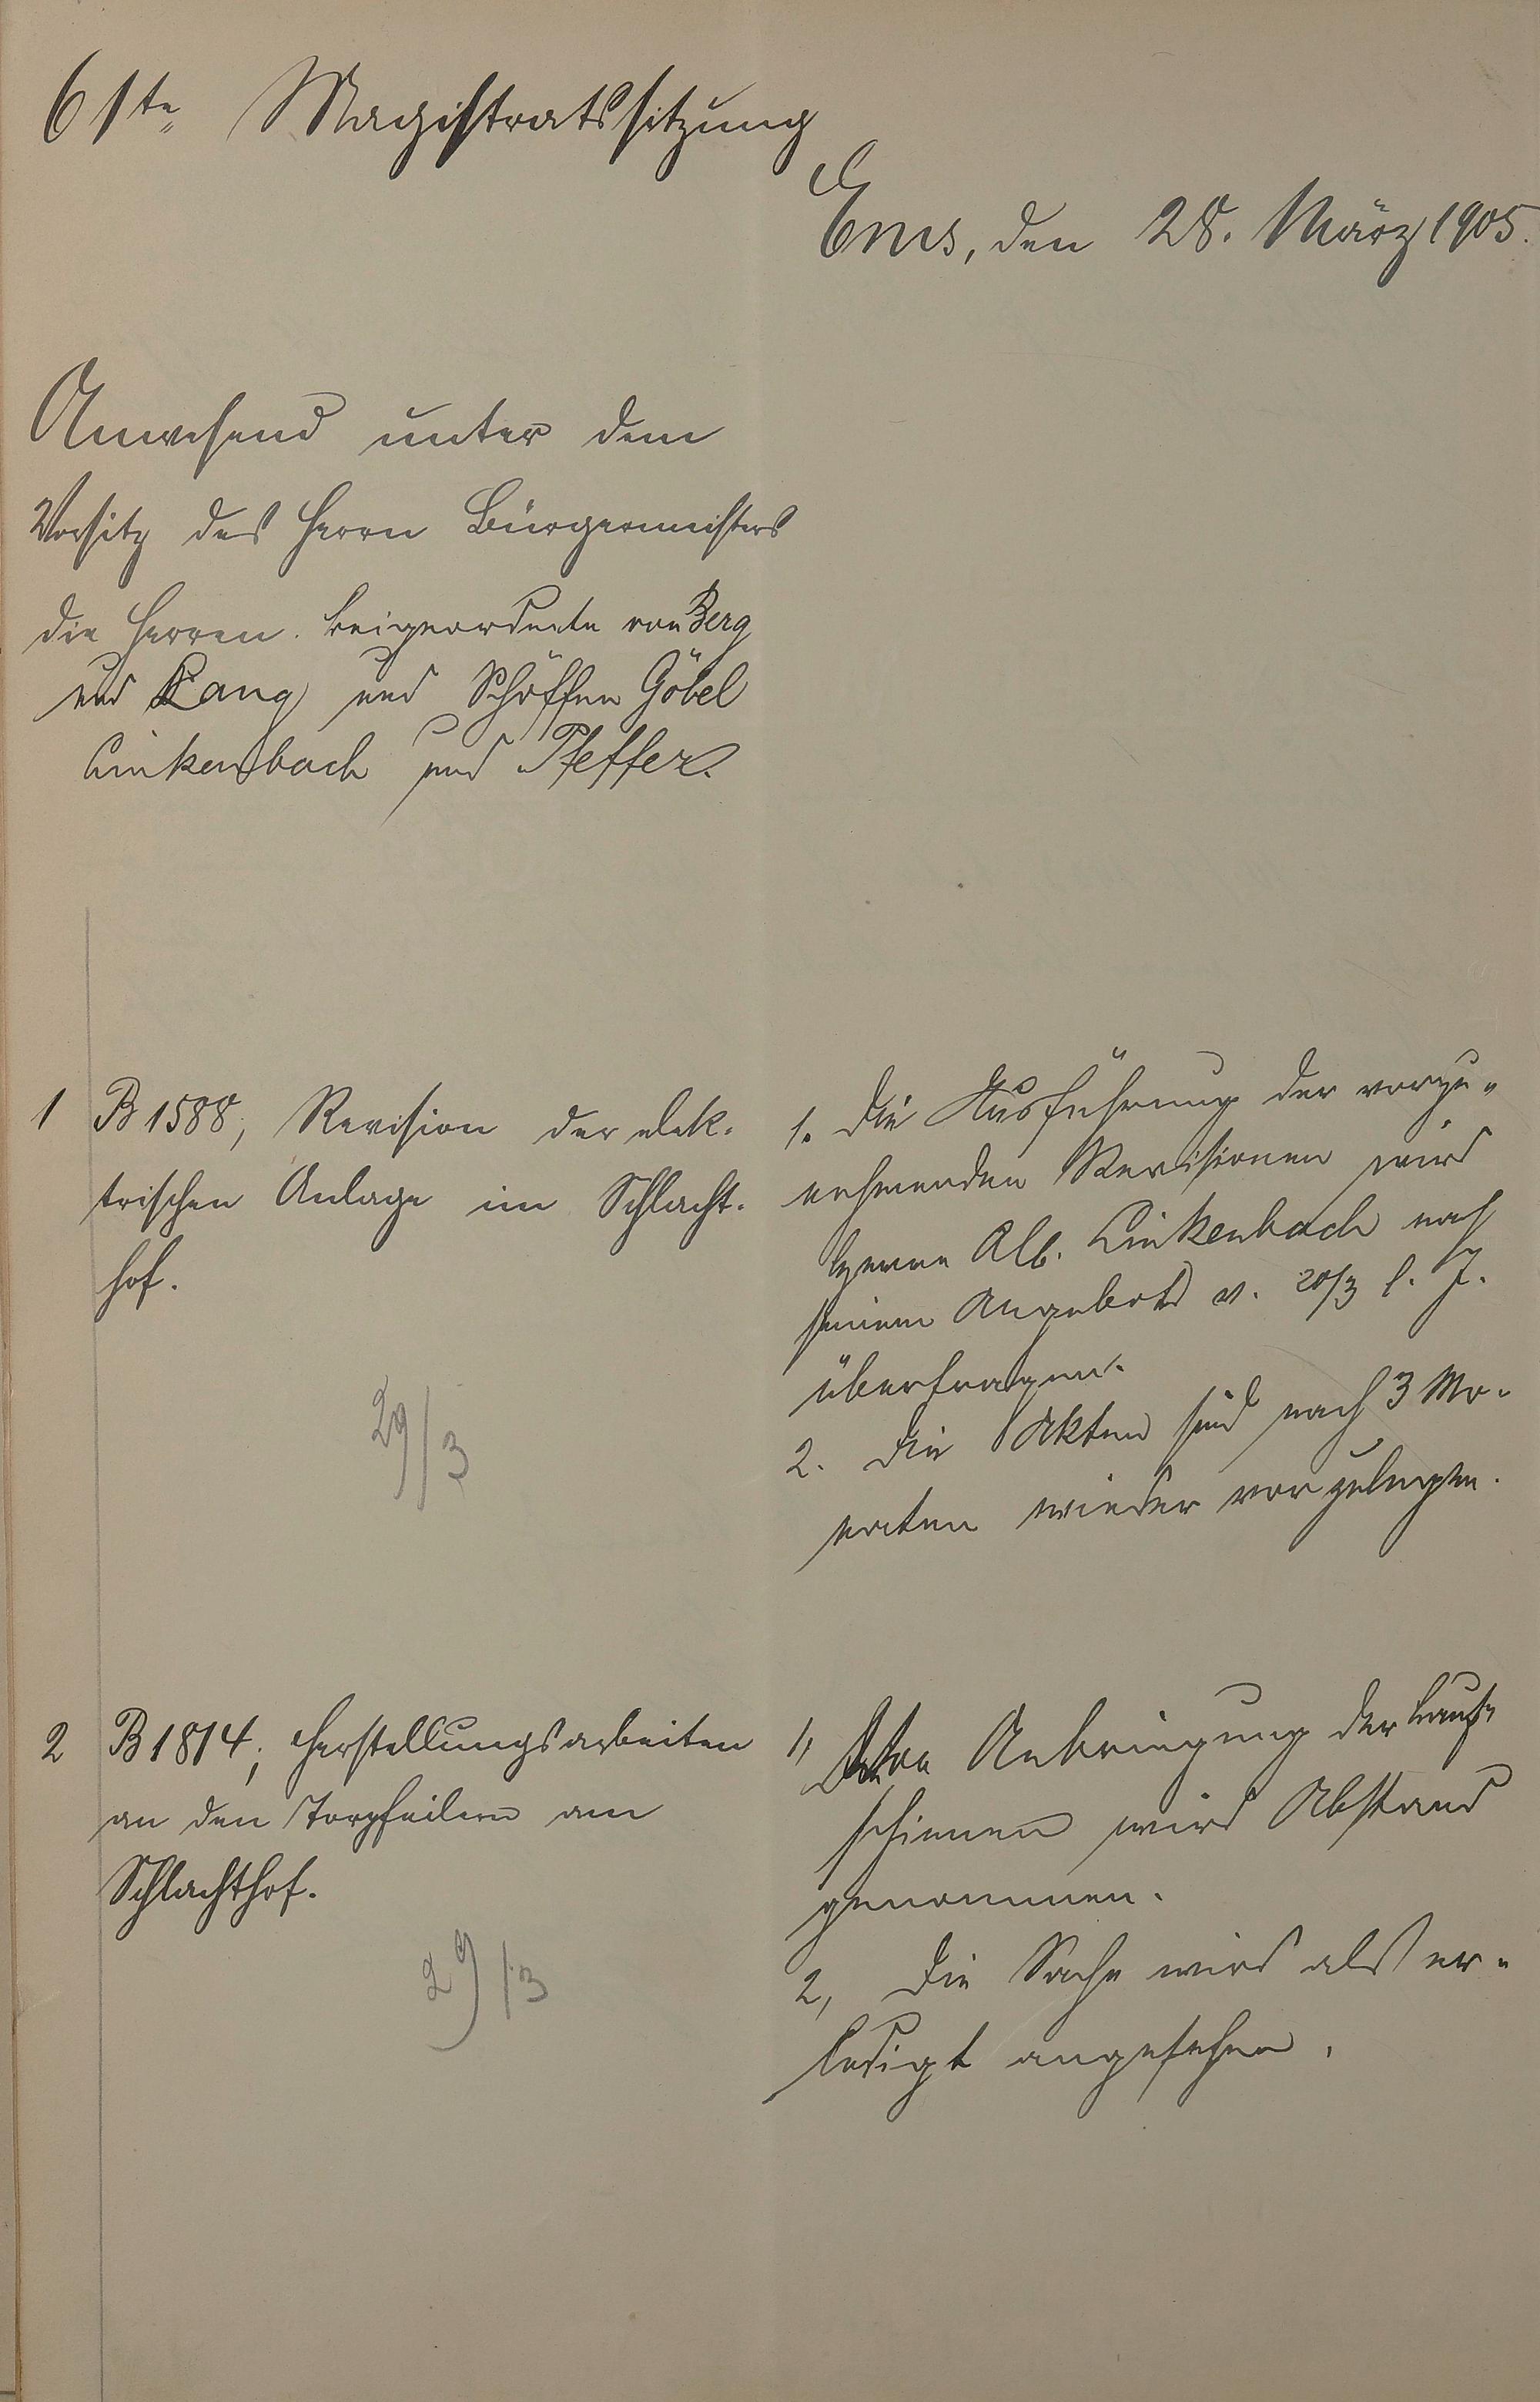 6te Magistratssitzung
Ems, den 28. März 1905.
Anwesend unter dem
Vorsitz des Herrn Bürgermeisters
die Herren Beigeordnete von Berg
und Lang und Schöffen Göbel
Linkenbach und Pfeffer.
1 B 1588, Revision der elek-
trischen Anlage im Schlacht-
hof.
29/3
1. Die Ausführung der vorzu-
nehmenden Revisionen wird
Herrn Alb. Linkenbach nach
seinem Angebot v. 20/3 l. J.
übertragen.
2. Die Akten sind nach 3 Mo-
naten wieder vorzulegen.
2 B 1814, Herstellungsarbeiten
an den Torpfeilern am
Schlachthof.
29/3
1, Von Anbringung der Lauf-
schienen wird Abstand
genommen.
2, Die Sache wird als er-
ledigt angesehen.